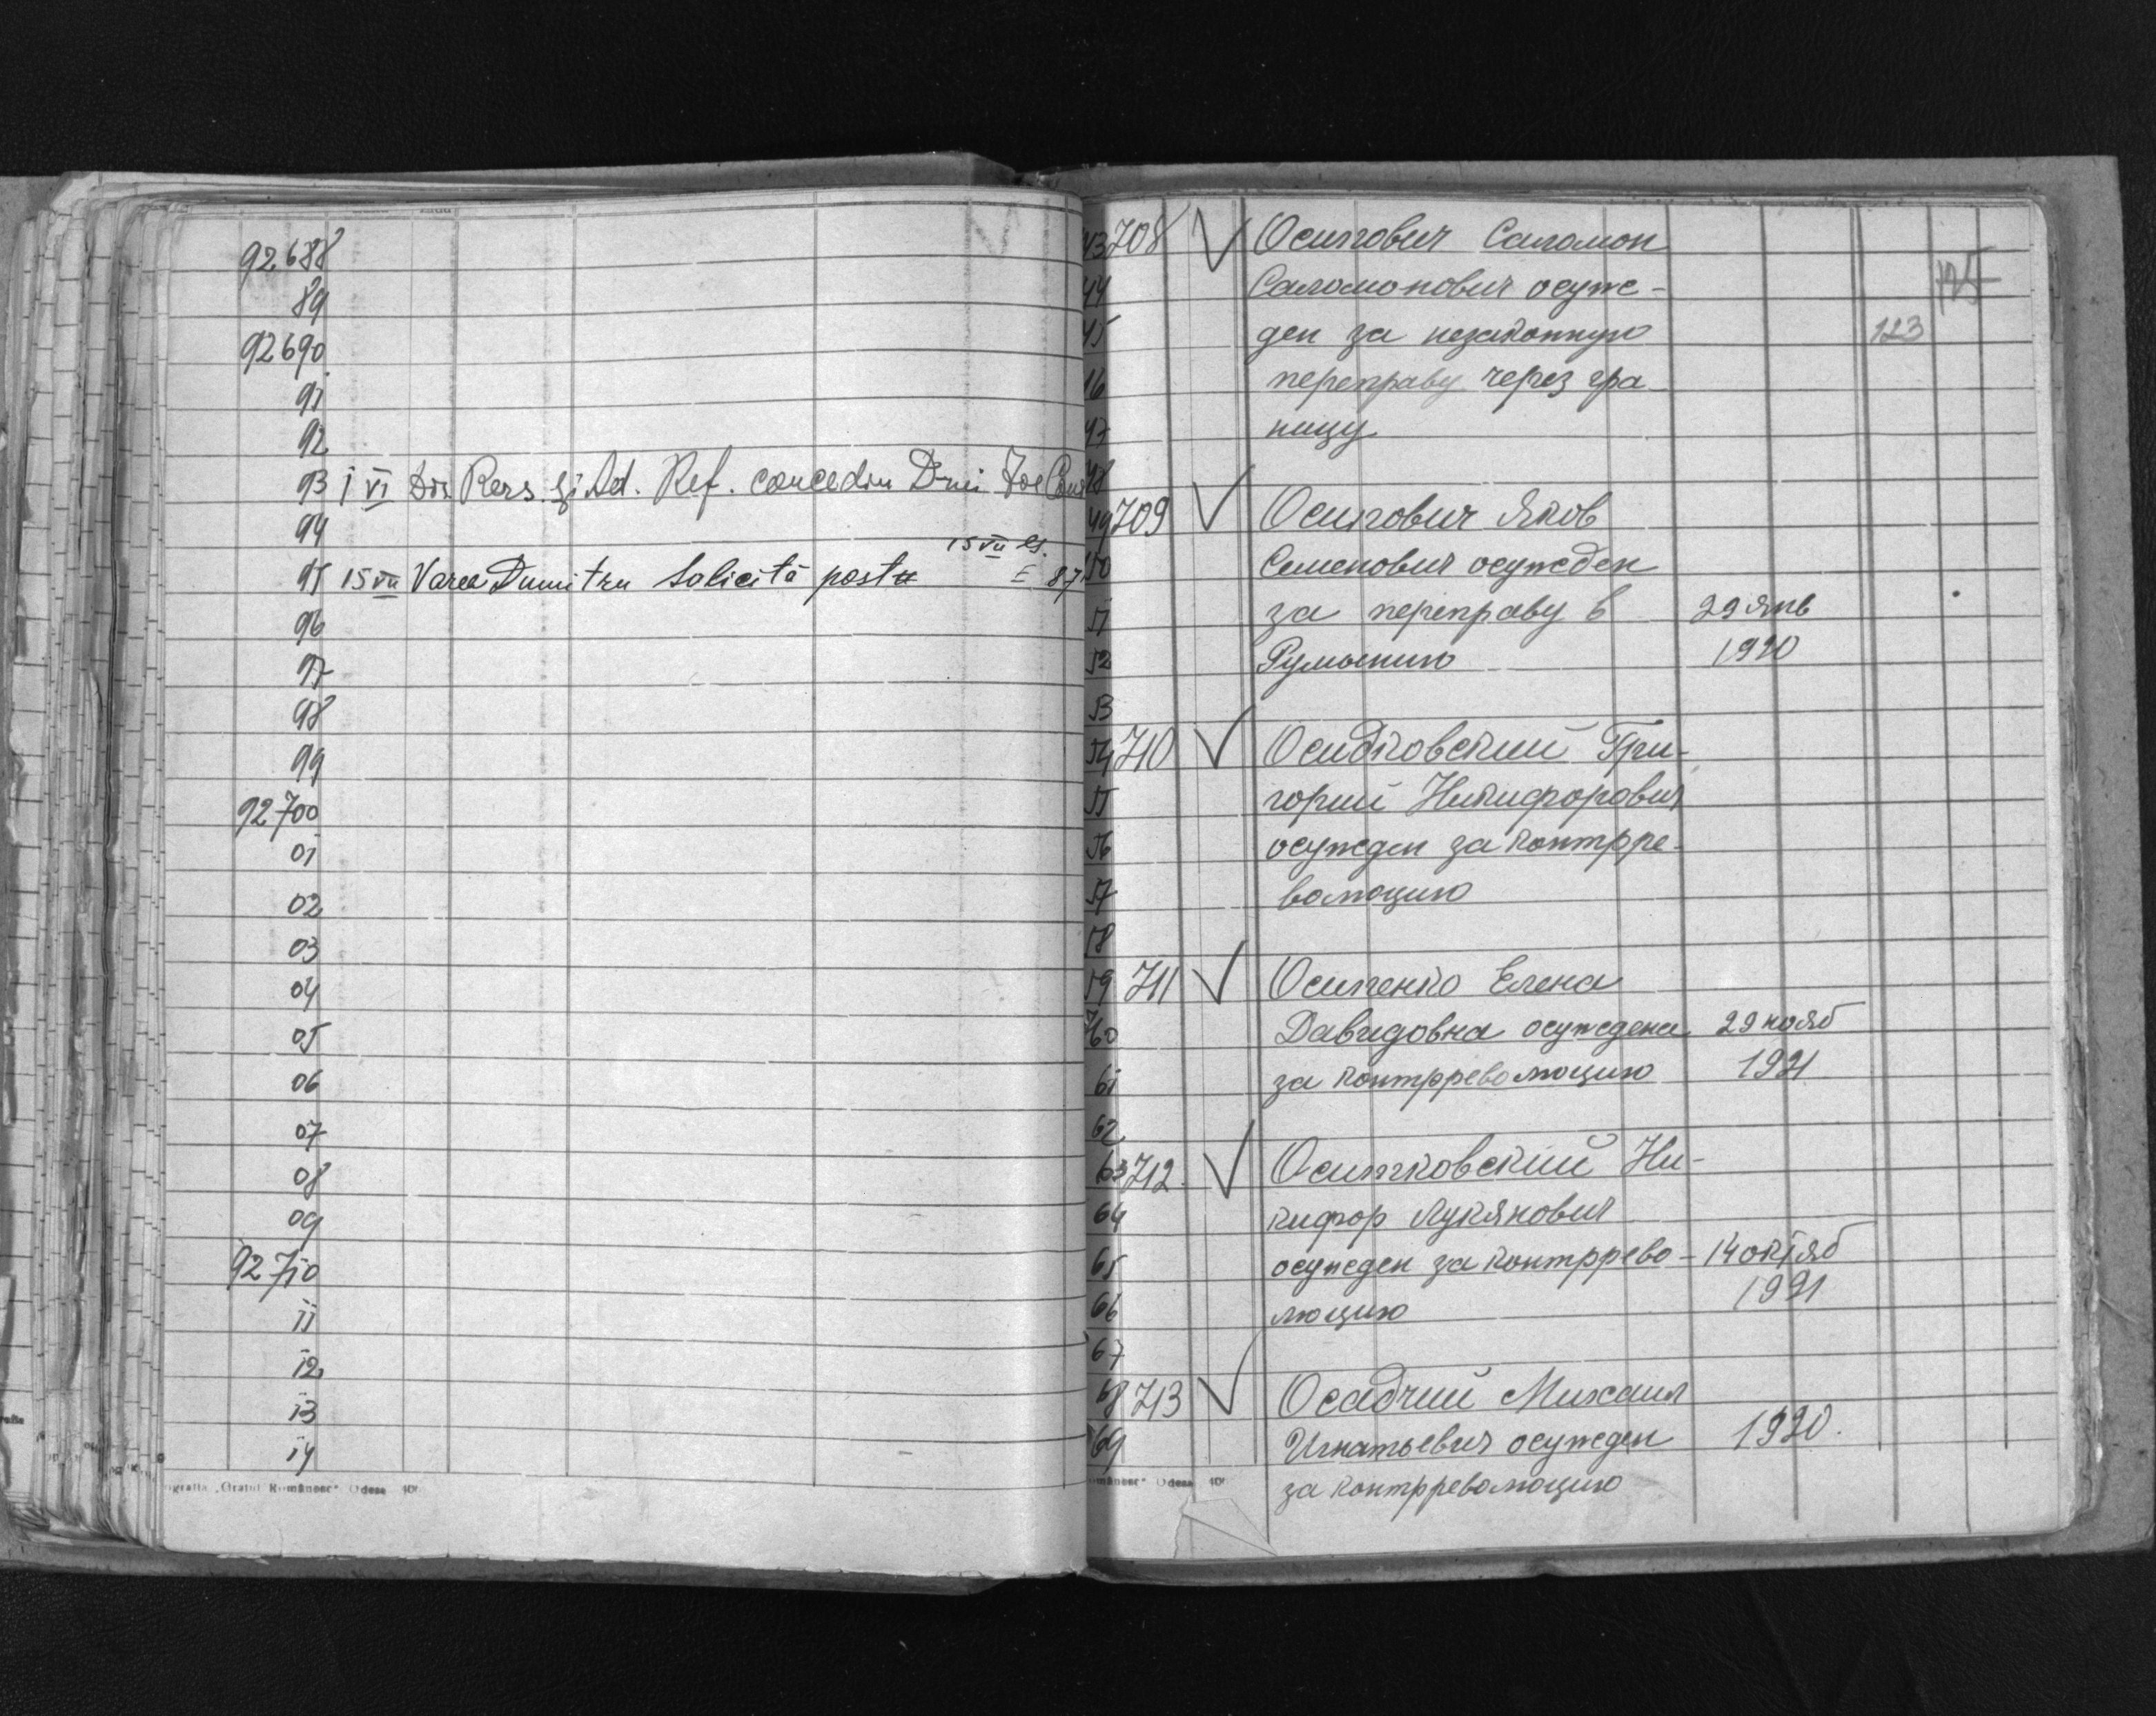 92688
89
92690
91
92
93 1 VI Dir. Pers. și Ad. Ref. concediu D-nei
94
15 VII
95 15 VII Varea Dumitru Solicită postu E 87
96
97
98
99
92700
01
02
03
04
05
06
07
08
09
92710
11
12
13
14
"Graiul Românesc" Odesa
43 708 √ Осипович Саломон
44 Саломонович осуж-
45 ден за незаконную 123
46 переправу через гра
47 ницу
48
49 709 √ Осипович Яков
50 Семенович осужден
51 за переправу в 29 янв
52 Румынию 1920
53
54 710 √ Осидковский Гри-
55 горий Никифорович
56 осужден за контрре-
57 волюцию
58
59 711 √ Осипенко Елена
760 Давидовна осуждена 29 нояб
61 за контрреволюцию 1921
62
63 712. √ Оситковский Ни-
64 кифор Лукянович
65 осужден за контррево- 14 октяб
66 люцию 1921
67
68 713 √ Осадчий Михаил
69 Игнатьевич осужден 1920.
Românesc" Odesa
за контрреволюцию